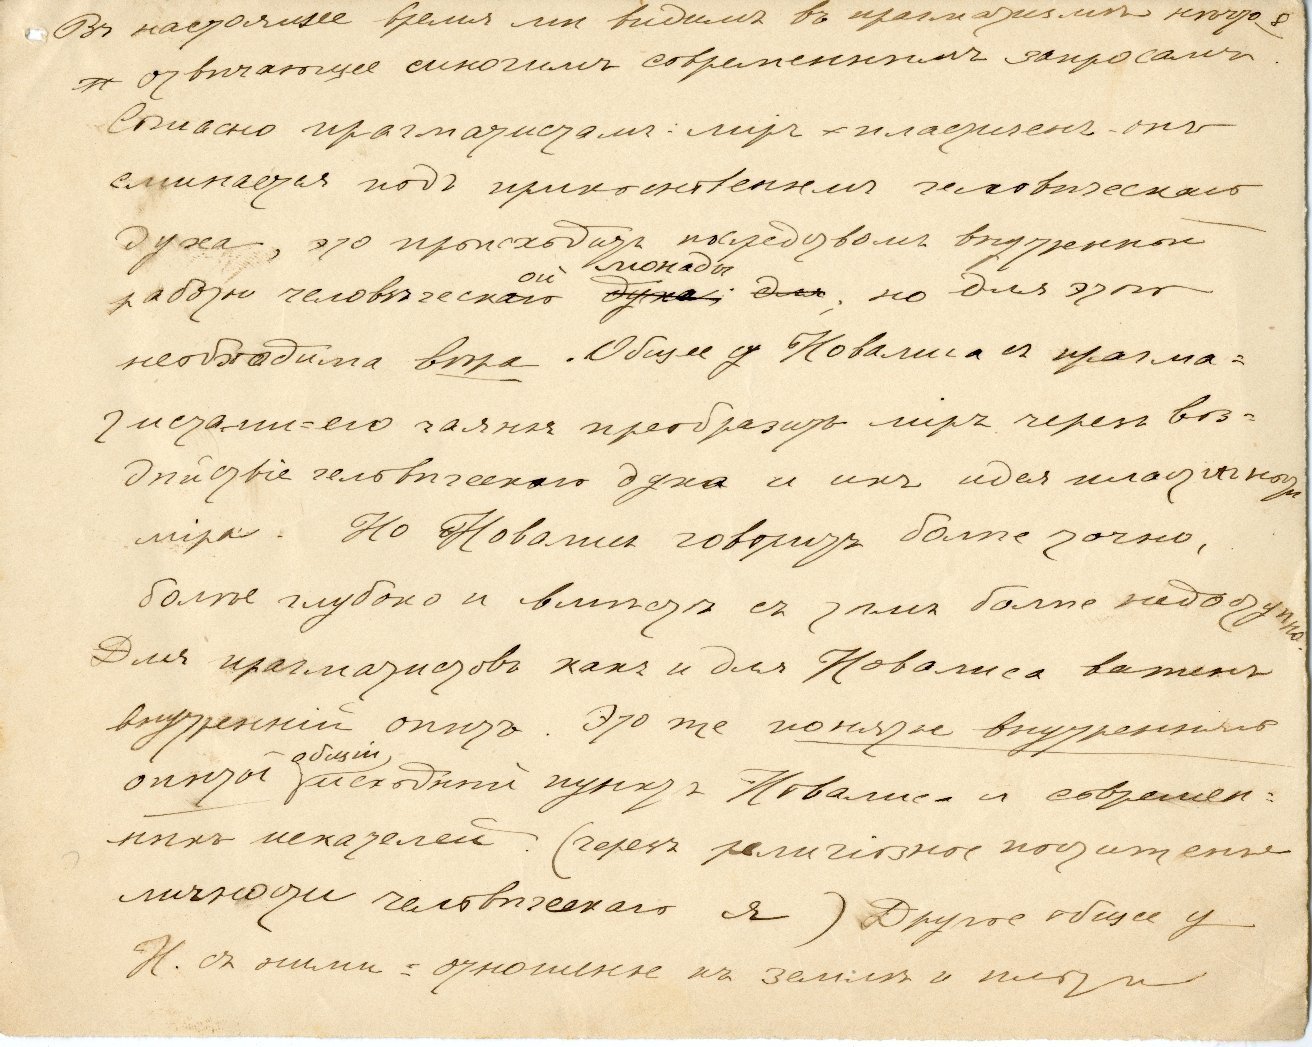 Въ настоящее время мы видимъ въ прагматизмѣ нѣчто 8
отвѣчающее многимъ современнымъ запросамъ.
Согласно прагматистамъ: міръ пластиченъ - онъ
сминается подъ прикосновеніемъ человѣческаго
духа, это происходитъ посредствомъ внутренной
монады
работы человѣческаго ой духа; для, но для этого
необходима вѣра. Общее у Новалиса съ прагма=
тистами=его чаянье преобразить міръ черезъ воз=
дѣйствіе человѣческаго духа и ихъ идея пластичности
міра. Но Новалисъ говоритъ болѣе точно,
болѣе глубоко и вмѣстѣ съ тѣмъ болѣе недоступно.
Для прагматистовъ какъ и для Новалиса важенъ
внутренній опытъ. Это же понятіе внутренняго
общій
опыта исходный пунктъ Новалиса и современ=
ныхъ искателей. (черезъ религіозное постиженье
личности человѣческаго я) Другое общее у
Н. съ ними = отношенье къ землѣ и плоти